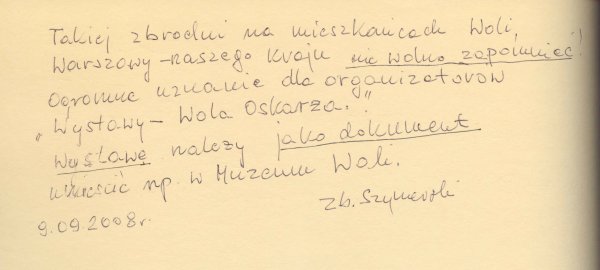 Takiej zbrodni na mieszkańcach Woli,
Warszawy – naszego kraju nie wolno zapomnieć!
Ogromne uznanie dla organizatorów
„Wystawy – Wola Oskarża."
Wystawę należy jako dokument
umieścić np. w Muzeum Woli.
Zb. Szymański
9.09.2008r.